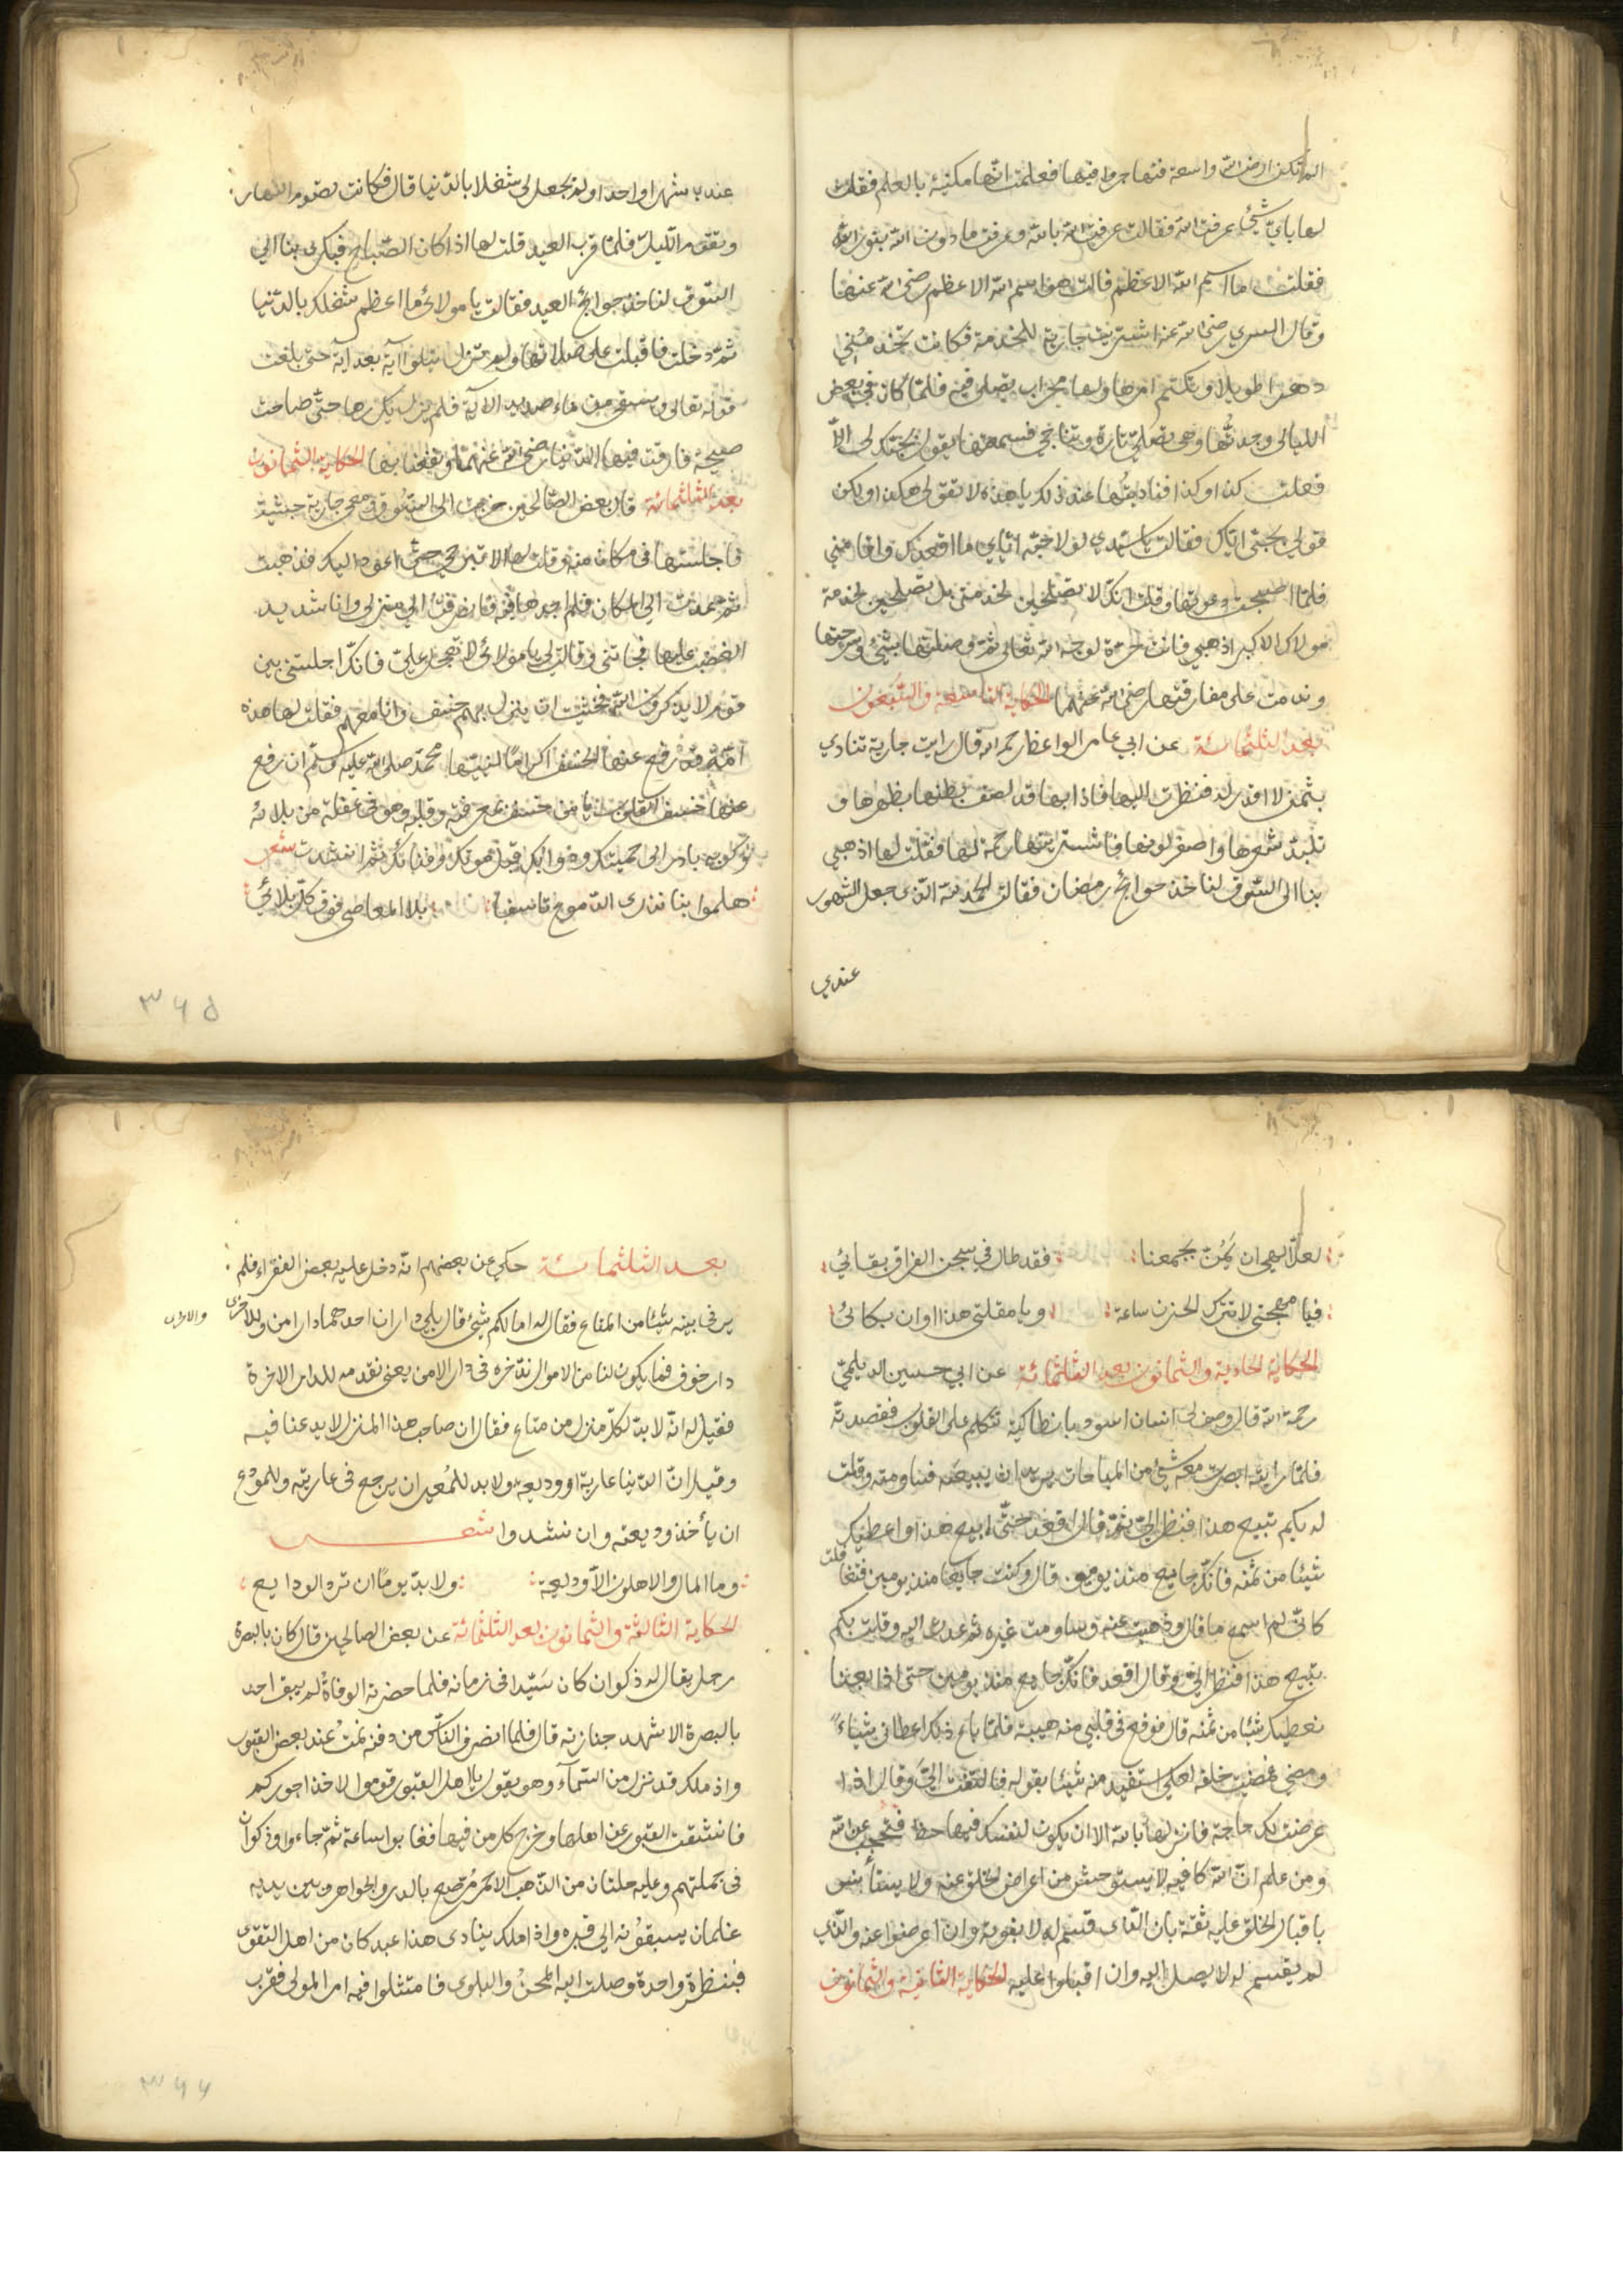 الم تكن ارض الله واسعة فتهاجروا فيها فعلمت انها مكنية بالعلم فقلت
لها باي شئ عرفت الله فقالت عرفت الله بالله وعرفت ما دون الله بنور الله
فقلت ما اسم الله الاعظم قالت هو اسم الله الاعظم رضى الله عنها
وقال السري رضى الله عنه اشتريت جارية للخدمة فكانت تخدمني
دهرا طويلا وتكتم امرها ولها محراب تصلى فيه فلما كان في بعض
الليالى وجدتها وهى تصلى تارة وتناجي فسمعتها تقول بحبك لى الا
فعلت كذا وكذا فناديتها عند ذلك يا هذه لا تقولى هكذا ولكن
قولي بحبى اياك فقالت يا سيدي لولا حبه اياي ما اقعدك واقامني
فلما اصبحت دعوتها وقلت انك لا تصلحين لخدمتى بل تصلحين لخدمة
مولاك الاكبر اذهبي فانت حرة لوجه الله تعالى ثم وصلتها بشئ وسرحتها
وندمت على مفارقتها رضى الله عنهما الحكاية التاسعة والسبعون
بعد الثلثمائة عن ابي عامر الواعظ رحمه الله قال رايت جارية تنادي
بثمن لا قدر له فنظرت اليها فاذا بها قد لصق بطنها بظهرها و
تلبد شعرها واصفر لونها فاشتريتها رحمة لها فقلت لها اذهبي
بنا الى السوق لناخذ حوائج رمضان فقالت الحمد لله الذى جعل الشهور
عندي
عندى شهرا واحدا ولم يجعل لى شغلا بالدنيا قال فكانت تصوم النهار
وتقوم الليل فلما قرب العيد قلت لها اذا كان الصباح فبكرى بنا الي
السوق لناخذ حوائج العيد فقالت يا مولائ ما اعظم شغلك بالدنيا
ثم دخلت فاقبلت على صلاتها ولم تزل تتلوا آية بعد آية حتى بلغت
قوله تعالى ويسقى من ماء صديد الآية فلم تزل تكررها حتى صاحت
صيحة فارقت فيها الدنيا رضى الله عنهما ونفعنا بها الحكاية الثمانون
بعد الثلثمائة قال بعض الصالحين خرجت الى السوق ومعى جارية حبشية
فاجلستها فى مكان منه وقلت لها لا تبرحي حتى اعود اليك فذهبت
ثم عدت الي المكان فلم اجدها فيه فانصرفت الي منزلى وانا شديد
الغضب عليها فجائتنى وقالت لى يا مولائ لا تعجل على فانك اجلستنى بين
قوم لا يذكرون الله فخشيت ان ينزل بهم خسف وانا معهم فقلت لها هذه
امة قد رفع عنها الخسف اكراما لنبيها محمد صلى الله عليه وسلم ان رفع
عنها خسف القلوب يا من خسف بمعرفته وقلبه وهو فى غفلة من بلائه
وكربه بادر الى حميتك ودوائك قبل موتك وفنائك ثم انشدت شعر
هلموا بنا نذرى الدموع تاسفا بلاء المعاصى فوق كل بلائي
٣٦٥
لعل الهى ان يمن بجمعنا فقد طال في سجن الفراق بقائي
فيا مهجتى لا تترك الحزن ساعة ويا مقلتى هذا اوان بكائ
الحكاية الحادية والثمانون بعد الثلثمائة عن ابي حسين الديلمى
رحمه الله قال وصف لى انسان اسود بانطاكية تتكلم على القلوب فقصدته
فلما رايته ابصرت معه شئ من المباحات يريد ان يبيعه فساومته وقلت
له بكم تبيع هذا فنظر الي ثم قال اقعد حتى ابيع هذا واعطيك
شيئا من ثمنه فانك جايع منذ يومين قال وكنت جايعا منذ يومين فتغافلت
كانى لم اسمع ما قال وذهبت عنه وساومت غيره ثم عدت اليه وقلت بكم
تبيع هذا فنظر الى وقال اقعد فانك جايع منذ يومين حتى اذا بعنا
نعطيك شيئا من ثمنه قال فوقع فى قلبي منه هيبة فلما باع ذلك اعطانى شيئا
ومضى فمضيت خلفه لعلى استفيد منه شيئا بقوله فالتفت الى وقال اذا
عرضت لك حاجة فانزلها بالله الا ان يكون لنفسك فيها حظ فتحجب عن الله
ومن علم ان الله كافيه لا يستوحش من اعراض الخلق عنه ولا يستأنس
باقبال الخلق عليه ثقة بان الذى قسم له لا يفوته وان اعرضوا عنه والذي
لم يقسم له لا يصل اليه وان اقبلوا عليه الحكاية الثانية والثمانون
بعد الثلثمائة حكي عن بعضهم انه دخل عليه بعض الفقراء فلم
ير فى بيته شيئا من المتاع فقال له اما لكم شئ قال بلى داران احدهما دار امن وللاخرى
دار خوف فما يكون لنا من الاموال ندخره فى دار الامن يعنى نقدمه للدار الاخرة
فقيل له انه لا بد لكل منزل من متاع فقال ان صاحب هذا المنزل لا يدعنا فيه
وقيل ان الدنيا عارية او وديعة ولا بد للمعير ان يرجع فى عاريته وللمودع
ان يأخذ وديعته وان نشدوا شعر
وما المال والاهلون الا وديعة ولا بد يوما ان ترد الودايع
الحكاية الثالثة والثمانون بعد الثلثمائة عن بعض الصالحين قال كان بالبصرة
رجل يقال له ذكوان كان سيدا فى زمانه فلما حضرته الوفاة لم يبق احد
بالبصرة الا شهد جنازته قال فلما انصرف الناس من دفنه نمت عند بعض القبور
واذ ملك قد نزل من السمآء وهو يقول يا اهل القبور قوموا لاخذ اجوركم
فانشقت القبور عن اهلها وخرج كل من فيها فغابوا ساعة ثم جاءوا وذكوان
فى جملتهم وعليه حلتان من الذهب الاحمر مرصع بالدر والجواهر وبين يديه
غلمان يسبقونه الي قبره واذا ملك ينادى هذا عبد كان من اهل التقوى
فبنظرة واحدة وصلت اليه المحن والبلوى فامتثلوا فيه امر المولى فقرب
٣٦٦